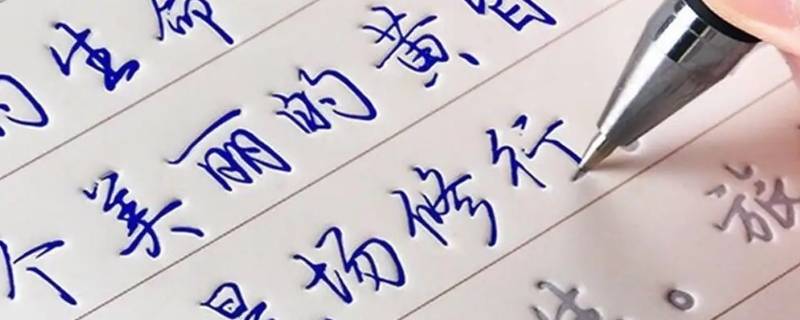 的生命
个美丽的黄昏
是场修行
生。旅